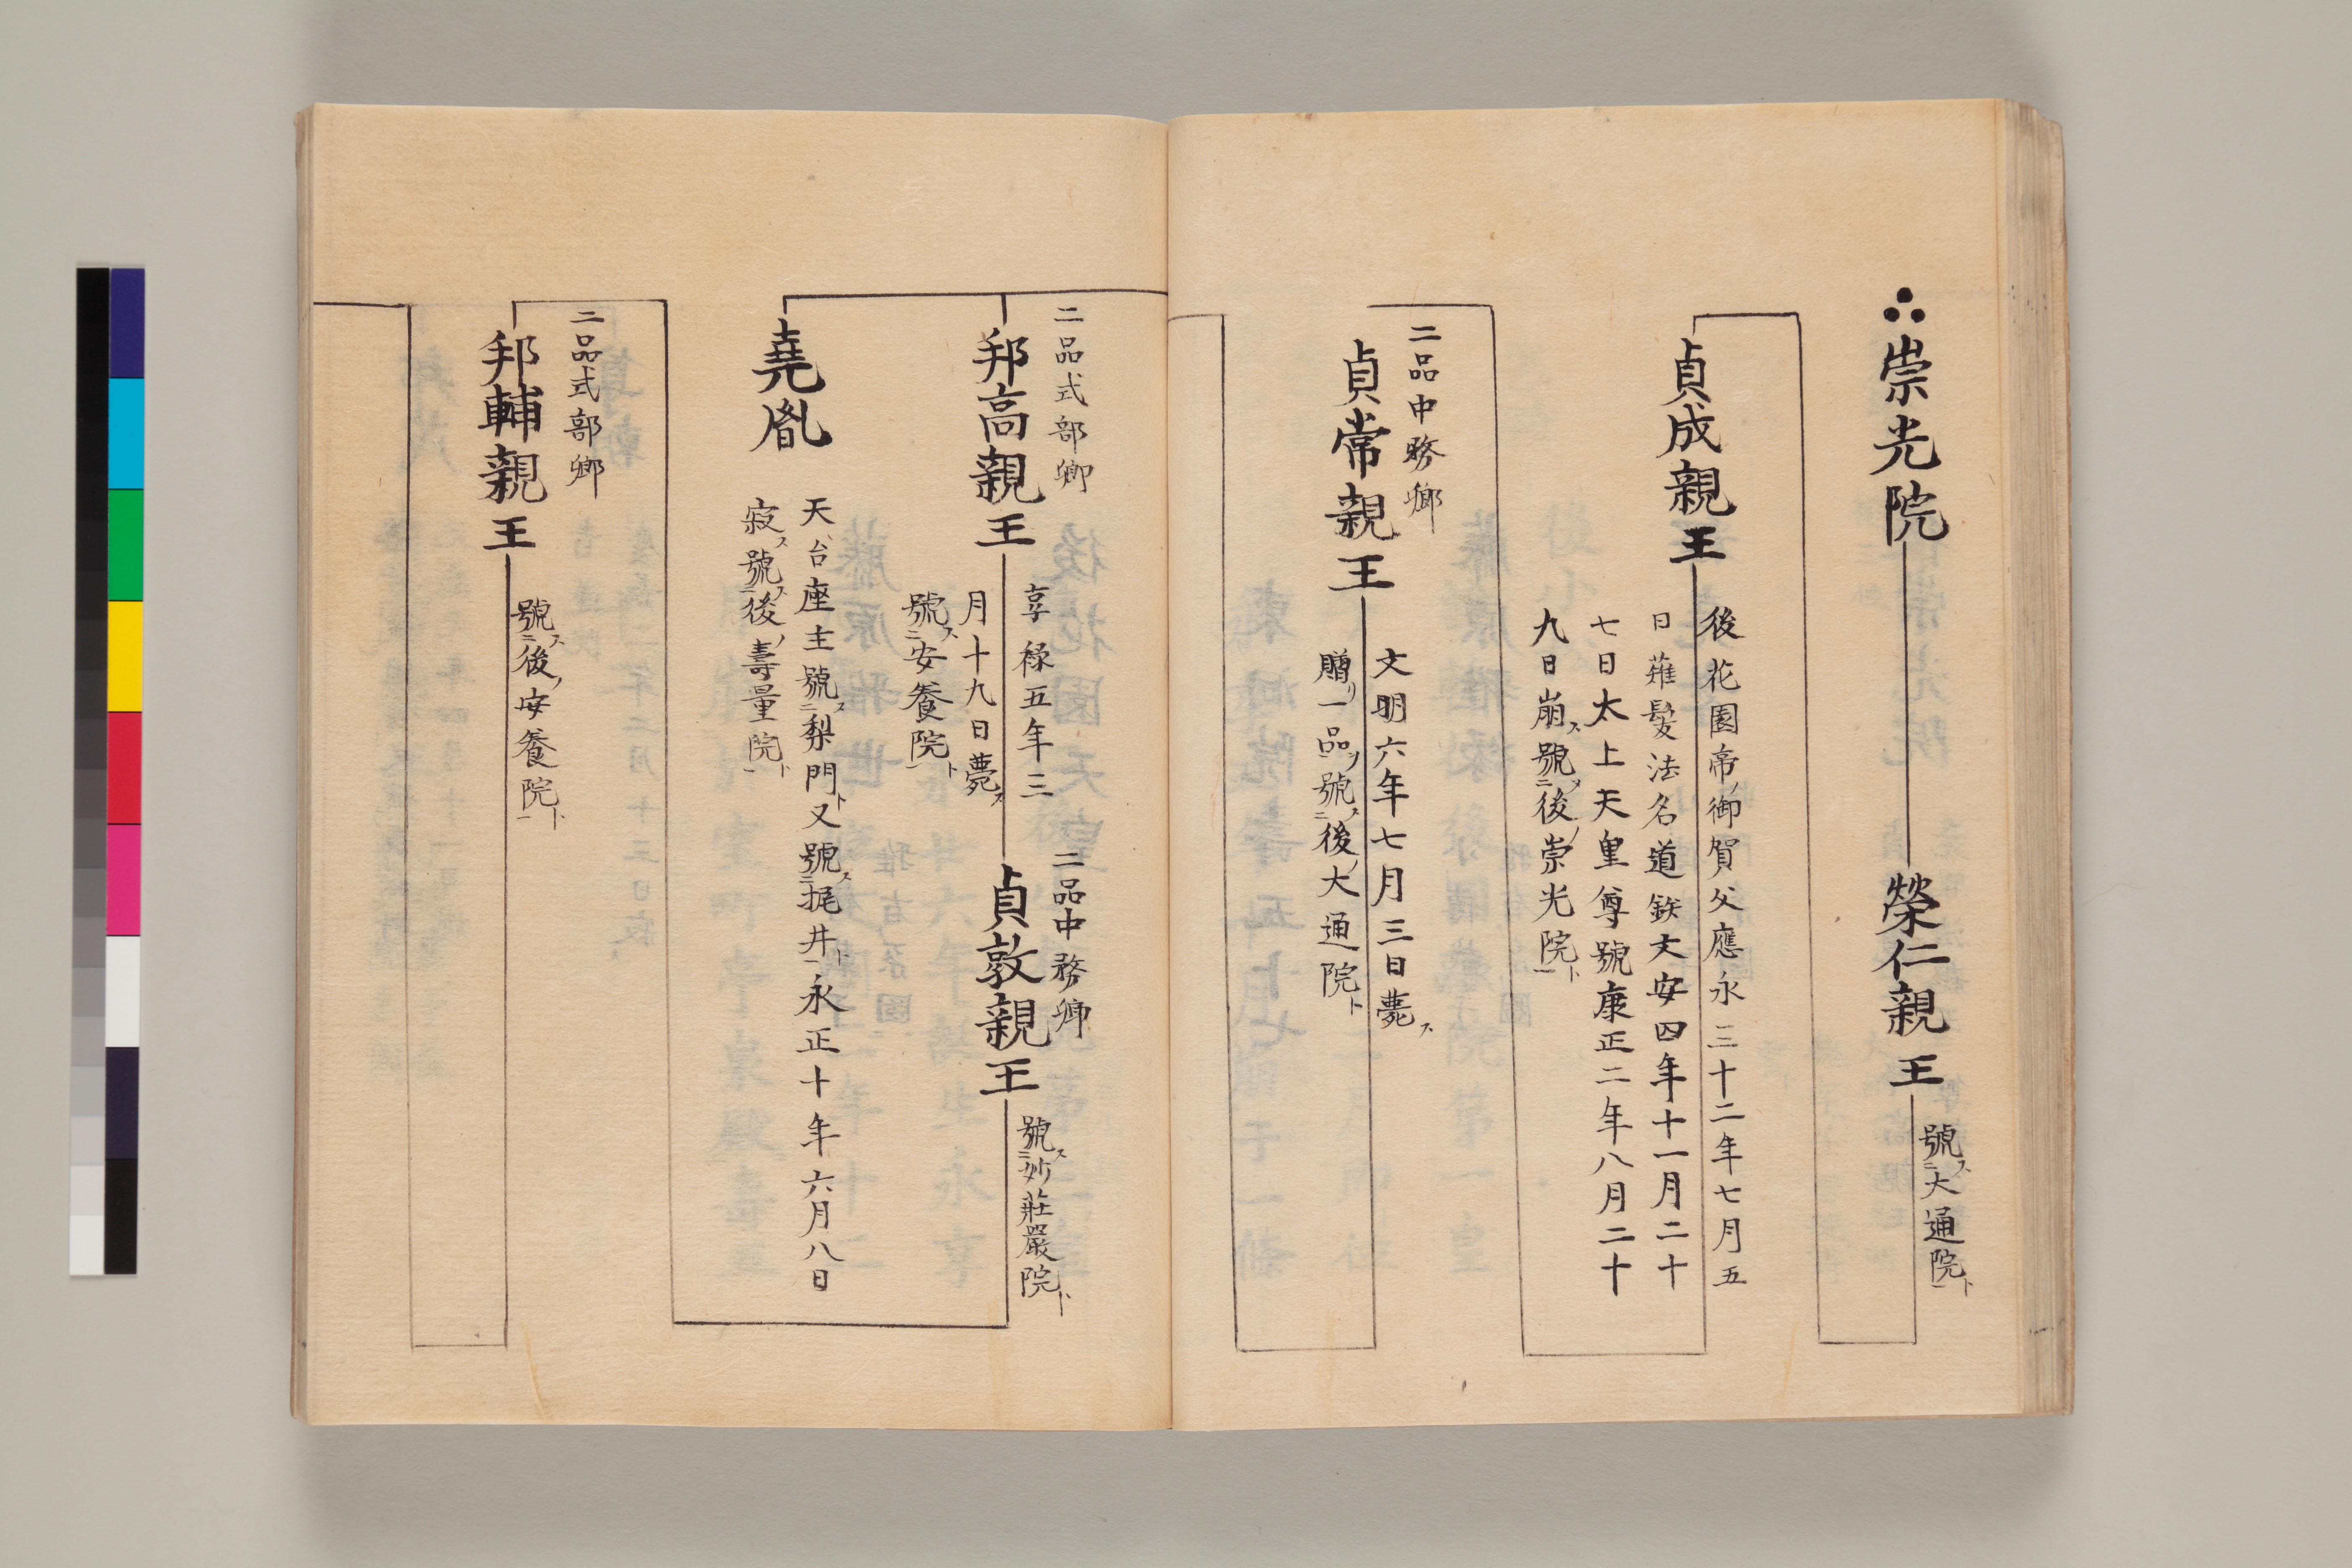 崇光院
榮仁親王
號ス二大通院ト一
貞成親王
後花園帝ノ御賀父應永三十二年七月五
日薙髪法名道欽大安四年十一月二十
七日太上天皇尊號康正二年八月二十
九日崩ス號ス二後ノ崇光院ト一
二品中務卿
貞常親王
文明六年七月三日薨ス
贈リ一品ヲ號ス二後ノ大通院ト
二品式部卿
邦高親王
享禄五年三
月十九日薨ス
號ス二安養院ト一
二品中務卿
貞敦親王
號ス二妙莊嚴院ト
堯胤
天台座主號ス二梨門ト又號ス二梶井ト一永正十年六月八日
寂ス號ス二後ノ壽量院ト一
二品式部卿
邦輔親王
號ス二後ノ安養院ト一